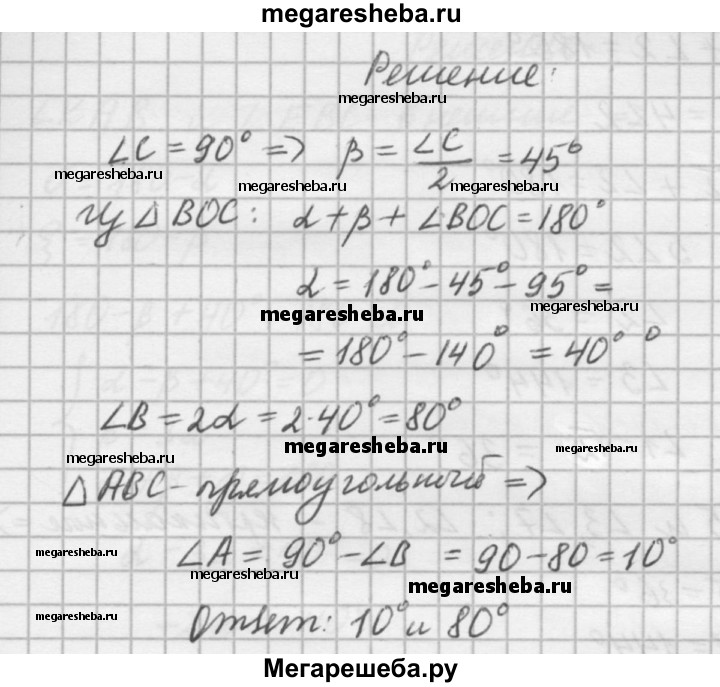 megaresheba.ru
Решение:
megaresheba.ru
∠C = 90° => β = ∠C/2 = 45°
megaresheba.ru megaresheba.ru megaresheba.ru
Из △ BOC: α + β + ∠BOC = 180°
α = 180° - 45° - 95° =
megaresheba.ru
megaresheba.ru
= 180° - 140° = 40°
∠B = 2α = 2·40° = 80°
megaresheba.ru megaresheba.ru
megaresheba.ru
△ ABC - прямоугольный =>
megaresheba.ru
∠A = 90° - ∠B = 90 - 80 = 10°
megaresheba.ru
megaresheba.ru
megaresheba.ru
Ответ: 10° и 80°
Мегарешеба.ру